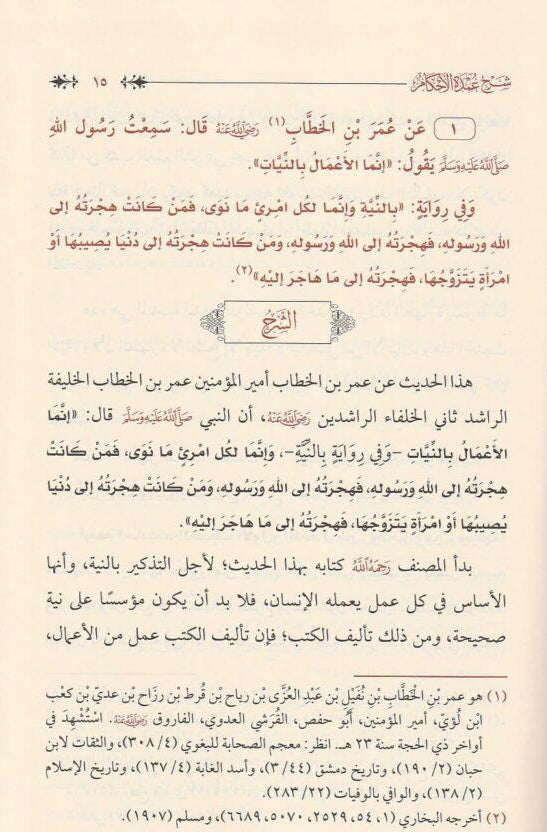 شرح عمدة الأحكام ١٥
١ عَنْ عُمَرَ بْنِ الْخَطَّابِ(١) رَضِيَ اللَّهُ عَنْهُ قَالَ: سَمِعْتُ رَسُولَ اللهِ
صَلَّى اللَّهُ عَلَيْهِ وَسَلَّمَ يَقُولُ: «إِنَّمَا الأَعْمَالُ بِالنِّيَّاتِ».
وَفِي رِوَايَةٍ: «بِالنِّيَّةِ وَإِنَّمَا لكُل امْرِئٍ مَا نَوَى، فَمَنْ كَانَتْ هِجْرَتُهُ إلى
اللهِ وَرَسُولهِ، فَهِجْرَتُهُ إلى اللهِ وَرَسُولهِ، وَمَنْ كَانَتْ هِجْرَتُهُ إلى دُنْيَا يُصِيبُهَا أَوْ
امْرَأَةٍ يَتَزَوَّجُهَا، فَهِجْرَتُهُ إلى مَا هَاجَرَ إليْهِ»(٢).
الشَّرْحُ
هذا الحديث عن عمر بن الخطاب أمير المؤمنين عمر بن الخطاب الخليفة
الراشد ثاني الخلفاء الراشدين رَضِيَ اللَّهُ عَنْهُ، أن النبي صَلَّى اللَّهُ عَلَيْهِ وَسَلَّمَ قال: «إِنَّمَا
الأَعْمَالُ بِالنِّيَّاتِ -وَفِي رِوَايَةٍ بِالنِّيَّةِ-، وَإِنَّمَا لكُل امْرِئٍ مَا نَوَى، فَمَنْ كَانَتْ
هِجْرَتُهُ إلى اللهِ وَرَسُولهِ، فَهِجْرَتُهُ إلى اللهِ وَرَسُولهِ، وَمَنْ كَانَتْ هِجْرَتُهُ إلى دُنْيَا
يُصِيبُهَا أَوْ امْرَأَةٍ يَتَزَوَّجُهَا، فَهِجْرَتُهُ إلى مَا هَاجَرَ إليْهِ».
بدأ المصنف رَحِمَهُ اللَّهُ كتابه بهذا الحديث؛ لأجل التذكير بالنية، وأنها
الأساس في كل عمل يعمله الإنسان، فلا بد أن يكون مؤسسًا على نية
صحيحة، ومن ذلك تأليف الكتب؛ فإن تأليف الكتب عمل من الأعمال،
(١) هو عمر بْنِ الْخَطَّابِ بْنِ نُفَيْلِ بْنِ عَبْدِ العُزَّى بْنِ رياح بْنِ قُرط بْنِ رزَاح بْنِ عديّ بْنِ كعْب
ابْنِ لُؤيّ، أمير المؤمنين، أَبُو حفص، القُرَشي العدوي، الفاروق رَضِيَ اللَّهُ عَنْهُ. اسْتُشْهِدَ في
أواخر ذي الحجة سنة ٢٣ هـ. انظر: معجم الصحابة للبغوي (٤/ ٣٠٨)، والثقات لابن
حبان (٢/ ١٩٠)، وتاريخ دمشق (٤٤/ ٣)، وأسد الغابة (٤/ ١٣٧)، وتاريخ الإسلام
(٢/ ١٣٨)، والوافي بالوفيات (٢٢/ ٢٨٣).
(٢) أخرجه البخاري (١، ٥٤، ٢٥٢٩، ٥٠٧٠، ٦٦٨٩)، ومسلم (١٩٠٧).